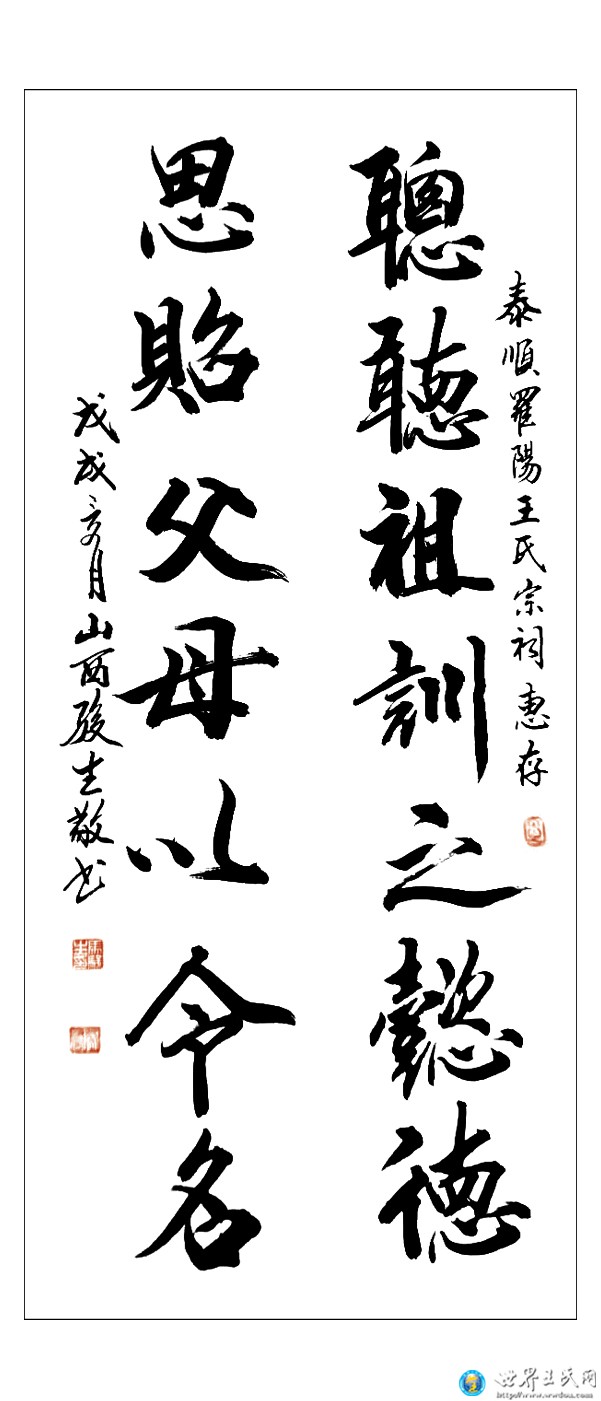 泰順羅陽王氏宗祠 惠存
聰聽祖訓之懿德
思貽父母以令名
戊戌亥月山西駿生敬书
世界王氏网
http://www.wwdou.com